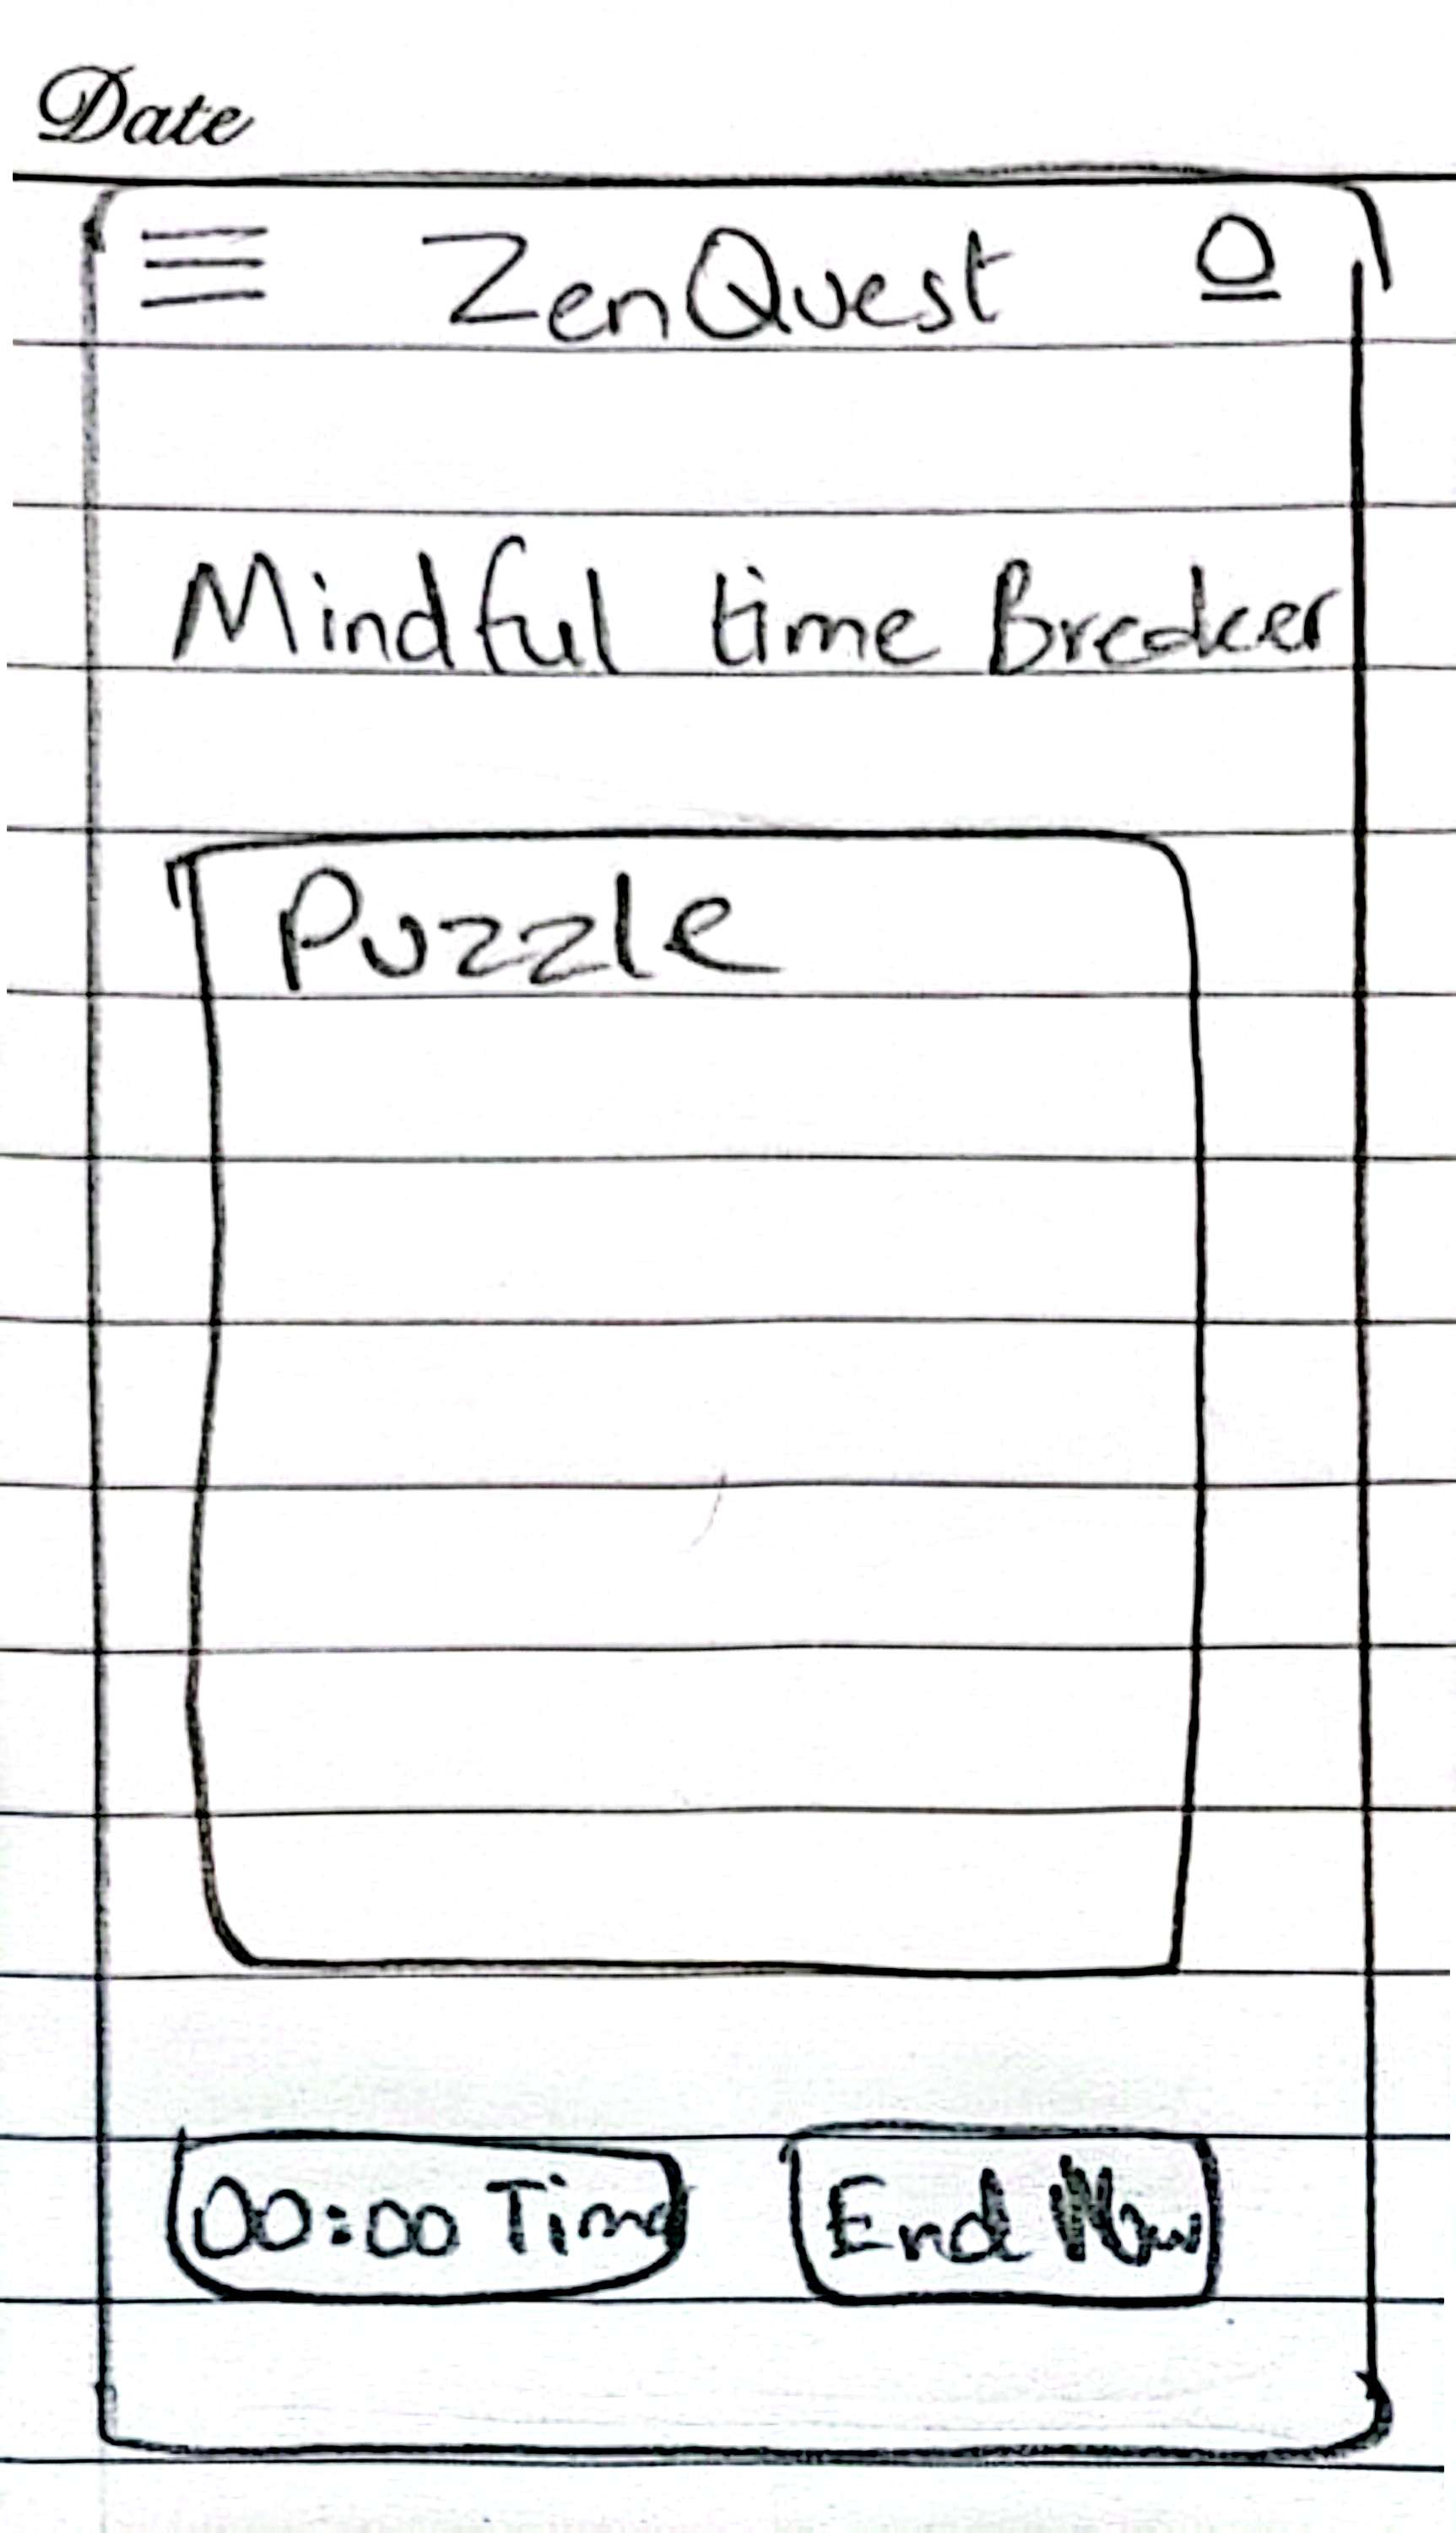 Date
ZenQuest
Mindful time Breaker
Puzzle
00:00 Time
End Now